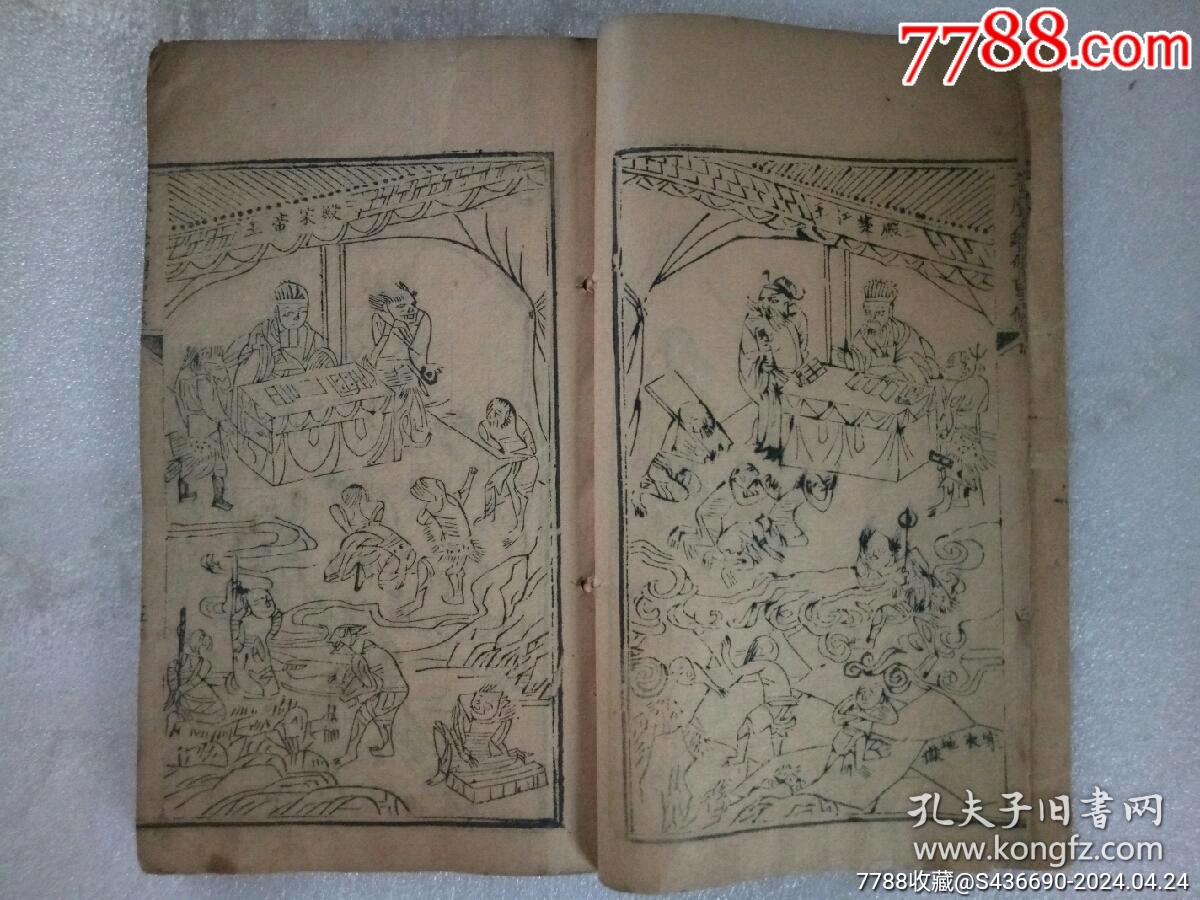 7788.com
殿楚江王
大地獄
殿宋帝王
孔夫子旧书网
www.kongfz.com
7788收藏@S436690-2024.04.24